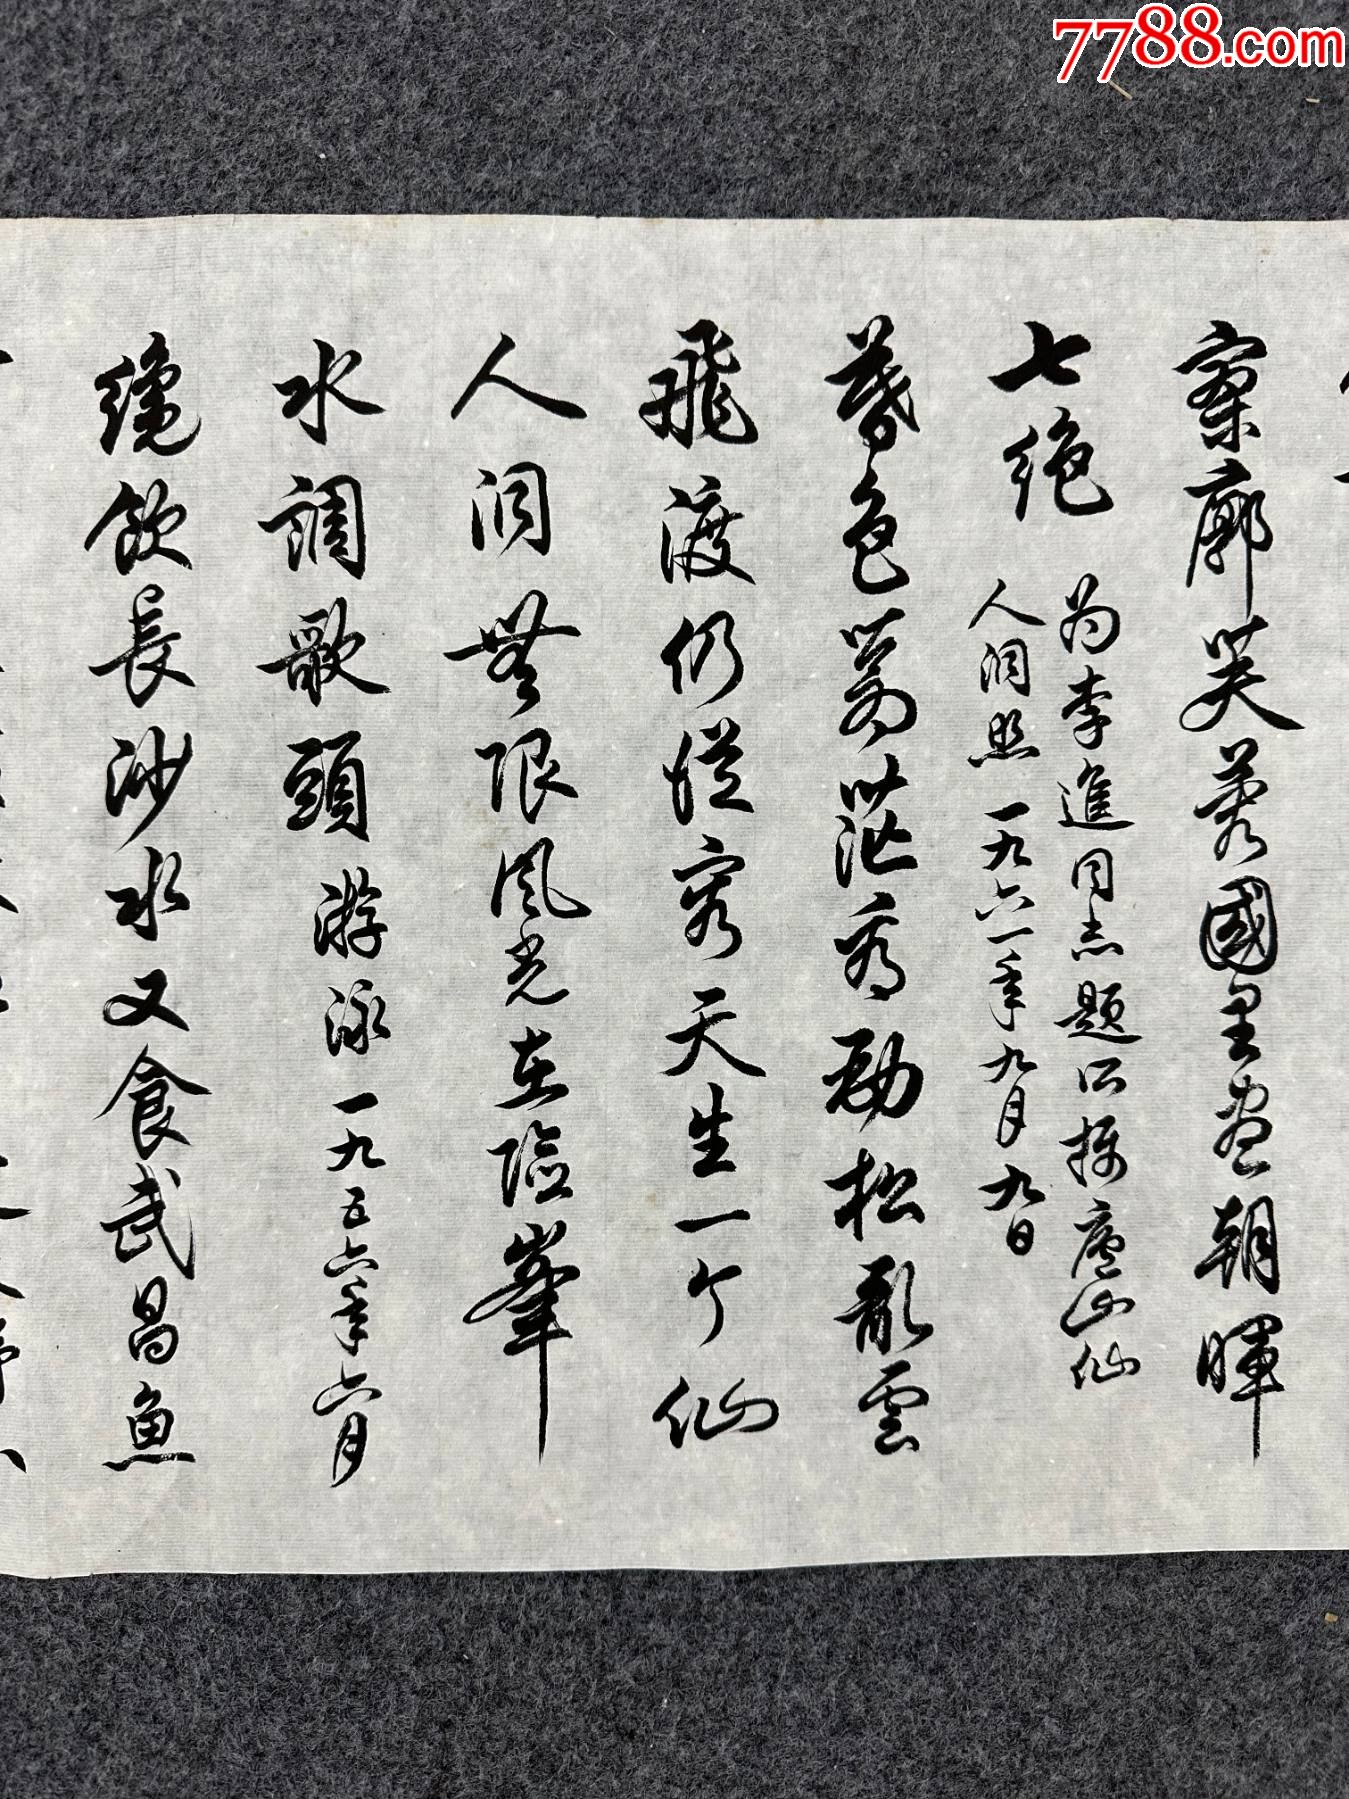 7788.com
寥廓芙蓉國里盡朝暉
七绝
为李進同志题所摄廬山仙
人洞照 一九六一年九月九日
暮色蒼茫看劲松亂雲
飛渡仍從容天生一个仙
人洞無限風光在險峯
水調歌頭 游泳 一九五六年六月
纔飲長沙水又食武昌魚